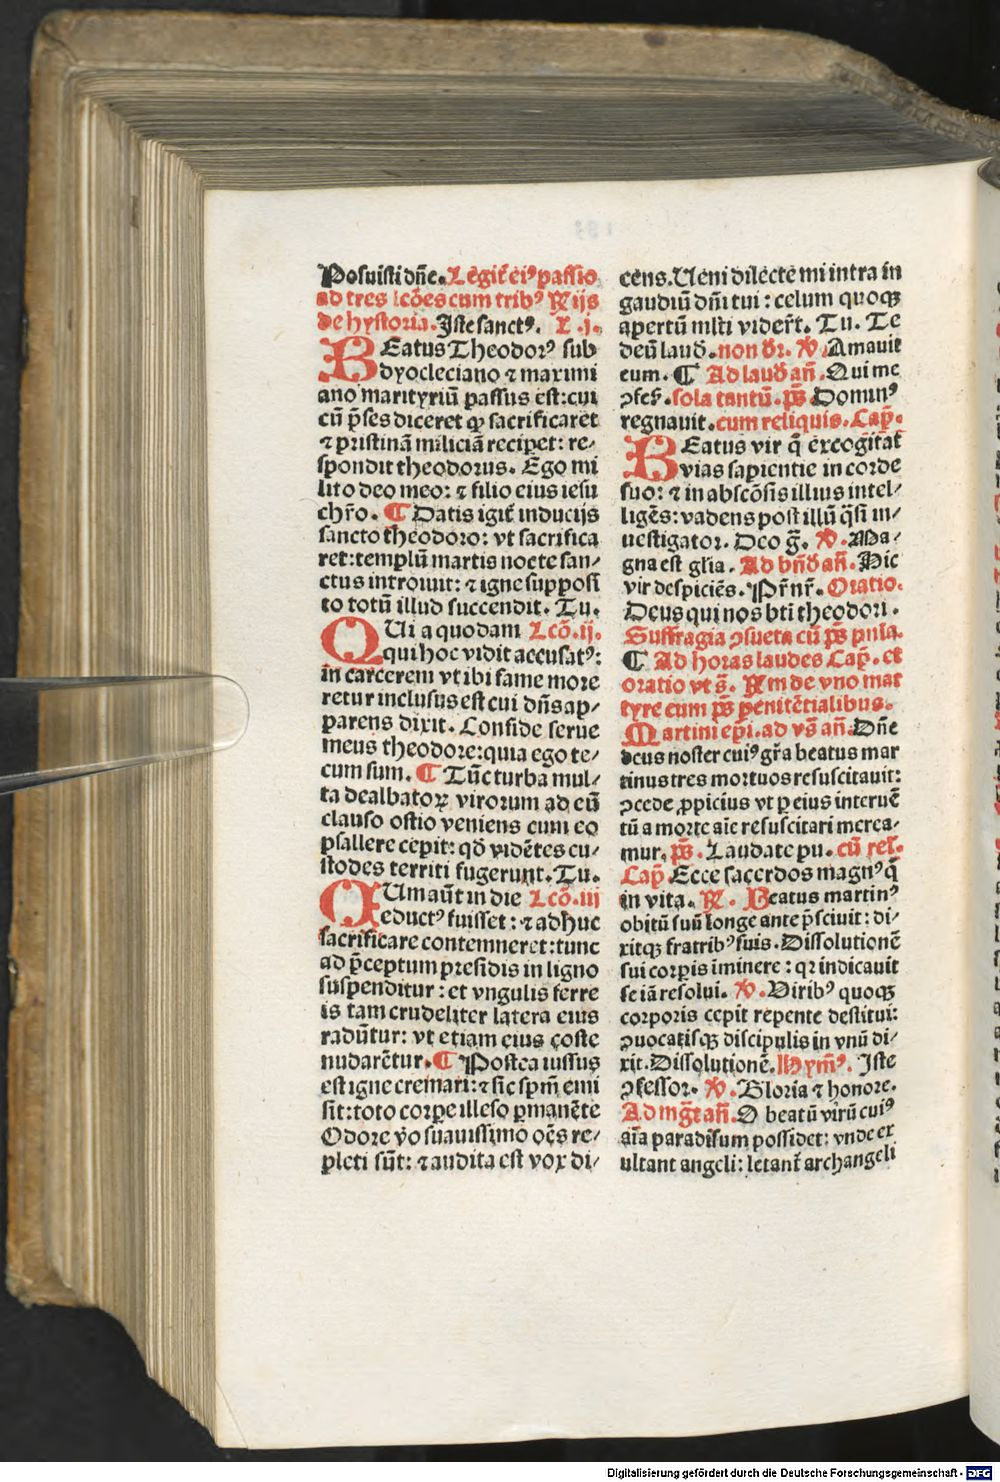 Posuisti dn̄e. Legit̄ ei⁹ passio
ad tres lcōes cum trib⁹ R̶ijs
de hystoria. Iste sanct⁹. L .j.
BEatus Theodor⁹ sub
dyocleciano ⁊ maximi
ano martyriū passus est: cui
cū p̄ses diceret ꝙ sacrificaret
⁊ pristinā miliciā recip̲et: re⸗
spondit theodorus. Ego mi
lito deo meo: ⁊ filio eius iesu
chr̄o. ¶ Datis igit̄ inducijs
sancto theodoro: vt sacrifica
ret: templū martis nocte san⸗
ctus introiuit: ⁊ igne supposi
to totū illud succendit. Tu.
QUi a quodam Lcō. ij.
qui hoc vidit accusat⁹:
in carcerem vt ibi fame more
retur inclusus est cui dn̄s ap⸗
parens dixit. Confide serue
meus theodore: quia ego te⸗
cum sum. ¶ Tūc turba mul⸗
ta dealbatoꝝ virorum ad eū
clauso ostio veniens cum eo
psallere cepit: qd̄ vidētes cu⸗
stodes territi fugerunt. Tu.
CUm aūt in die Lcō. iij
educt⁹ fuisset: ⁊ adhuc
sacrificare contemneret: tunc
ad p̄ceptum presidis in ligno
suspenditur: et vngulis ferre
is tam crudeliter latera eius
radūtur: vt etiam eius coste
nudarētur. ¶ Postea iussus
est igne cremari: ⁊ sic spm̄ emi
sit: toto corpe illeso ꝑmanēte
Odore v̄o suauissimo oēs re⸗
pleti sūt: ⁊ audita est vox di⸗
cens. Ueni dilecte mi intra in
gaudiū dn̄i tui: celum quoqꝫ
apertū mlti vider̄t. Tu. Te
deū laud̄. non d̄r. V̶. Amauit
eum. ¶ Ad laud̄ an̄. Qui me
ꝯfes̄. sola tantū. ps̄ Domin⁹
regnauit. cum reliquis. Cap̄.
BEatus vir q̄ excogitat̄
vias sapientie in corde
suo: ⁊ in abscōsis illius intel⸗
ligēs: vadens post illū q̄si in⸗
uestigator. Deo g̃. V̶. Ma⸗
gna est gl̄ia. Ad bn̄d̄ an̄. Hic
vir despiciēs. Pr̄nr̄. Oratio.
Deus qui nos bt̄i theodori.
Suffragia ꝯsueta cū ps̄ pn̄ia.
¶ Ad horas laudes Cap̄. et
oratio vt s̄. R̶m de vno mar
tyre cum ps̄ penitētialibus.
Martini ep̄i. ad vs̄ an̄. Dn̄e
deus noster cui⁹ gr̄a beatus mar
tinus tres mortuos resuscitauit:
ꝯcede ꝓpicius vt ꝑ eius interuē
tū a morte aīe resuscitari merea⸗
mur. ps̄. Laudate pu. cū rel̄.
Cap̄ Ecce sacerdos magn⁹ q̄
in vita. R̶. Beatus martin⁹
obitū suū longe ante p̄sciuit: di⸗
xitqꝫ fratrib⁹ suis. Dissolutionē
sui corpis īminere: qꝛ indicauit
se iā resolui. V̶. Dirib⁹ quoqꝫ
corporis cepit repente destitui:
ꝯuocatisqꝫ discipulis in vnū di⸗
xit. Dissolutionē. Hym⁹. Iste
ꝯfessor. V̶. Gloria ⁊ honore.
Ad mg̃t an̄. O beatū virū cui⁹
aīa paradisum possidet: vnde ex
ultant angeli: letant̄ archangeli
Digitalisierung gefördert durch die Deutsche Forschungsgemeinschaft - DFG